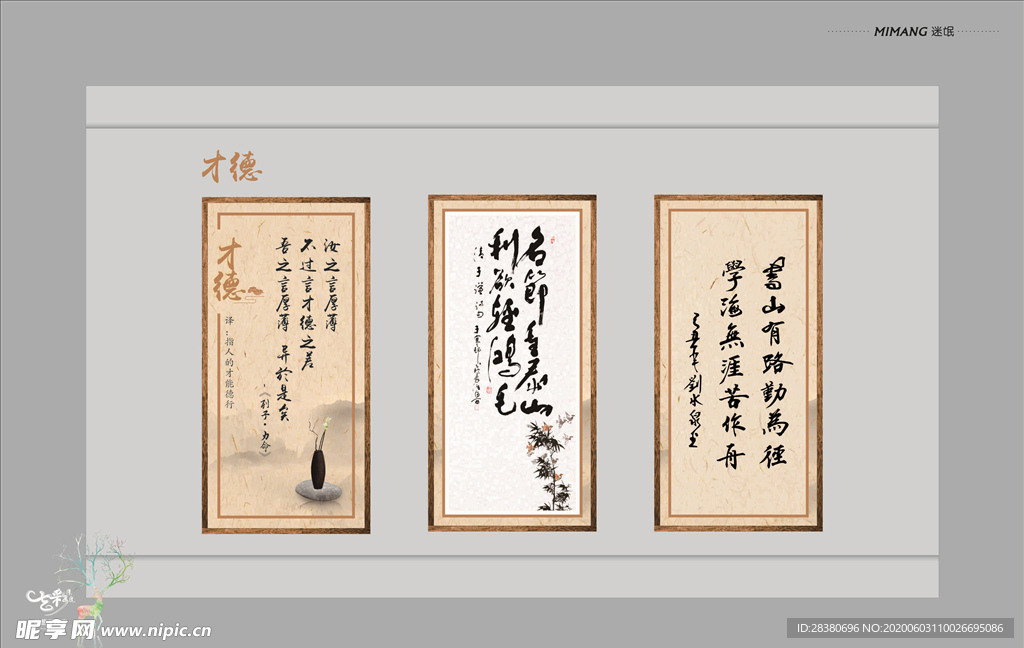 MIMANG 迷氓
才德
才德
译：指人的才能德行
汝之言厚薄
不过言才德之差
吾之言厚薄 异於是矣
·《列子·力命》
名節重泰山
利欲輕鴻毛
清 于謙 詩句
書山有路勤為徑
學海無涯苦作舟
昵享网 www.nipic.cn
ID:28380696 NO:20200603110026695086